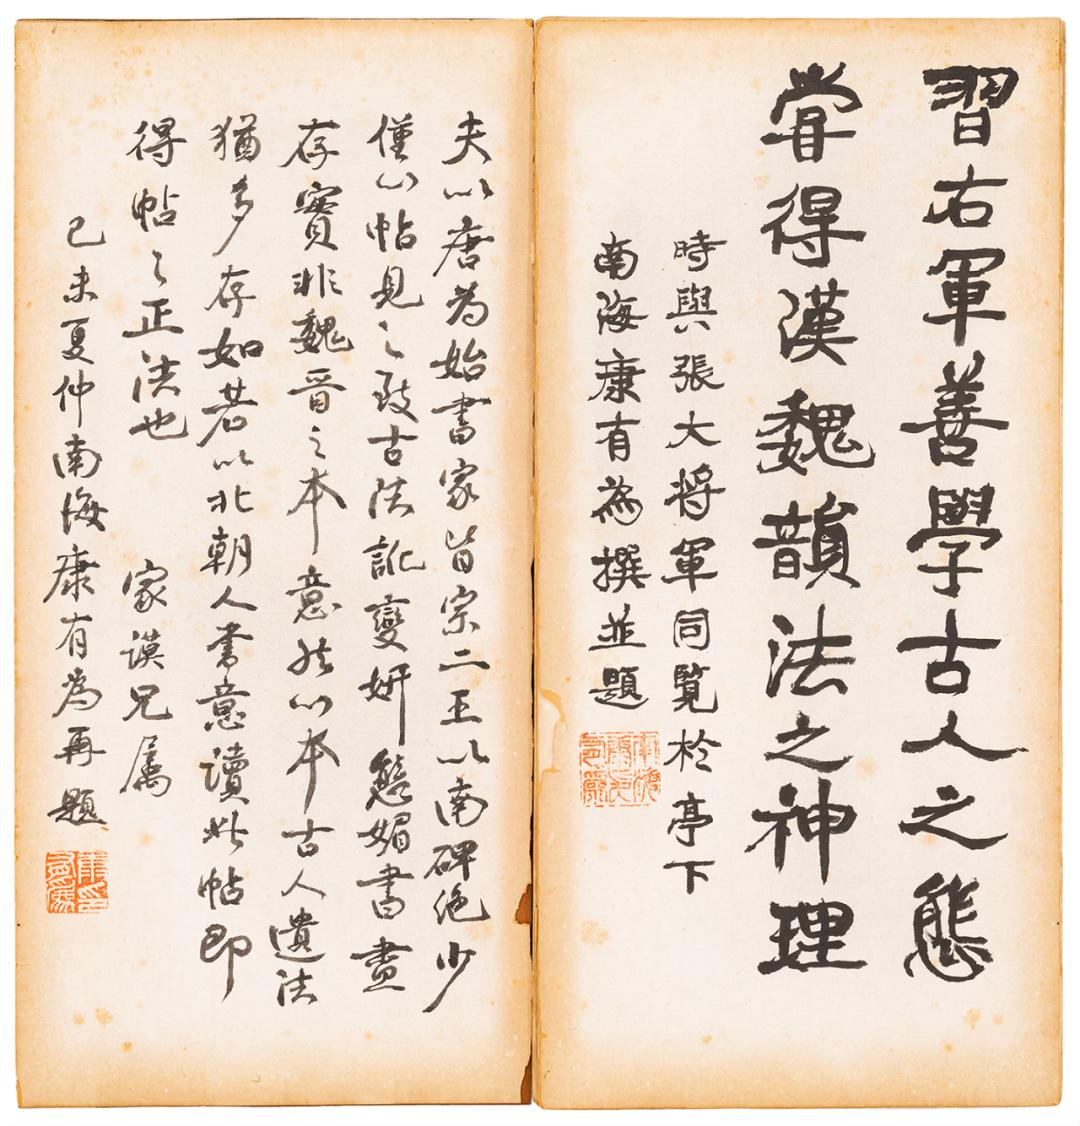 習右軍善學古人之態
嘗得漢魏韻法之神理
時與張大将軍同覽於亭下
南海康有為撰並題
夫以唐為始書家皆宗二王以南碑絶少
僅以帖見之致古法訛變妍態媚書盡
存實非魏晉之本意然以本古人遺法
猶多存如若以北朝人書意讀此帖即
得帖之正法也 家謨兄属
已未夏仲南海康有為再題
康有為印